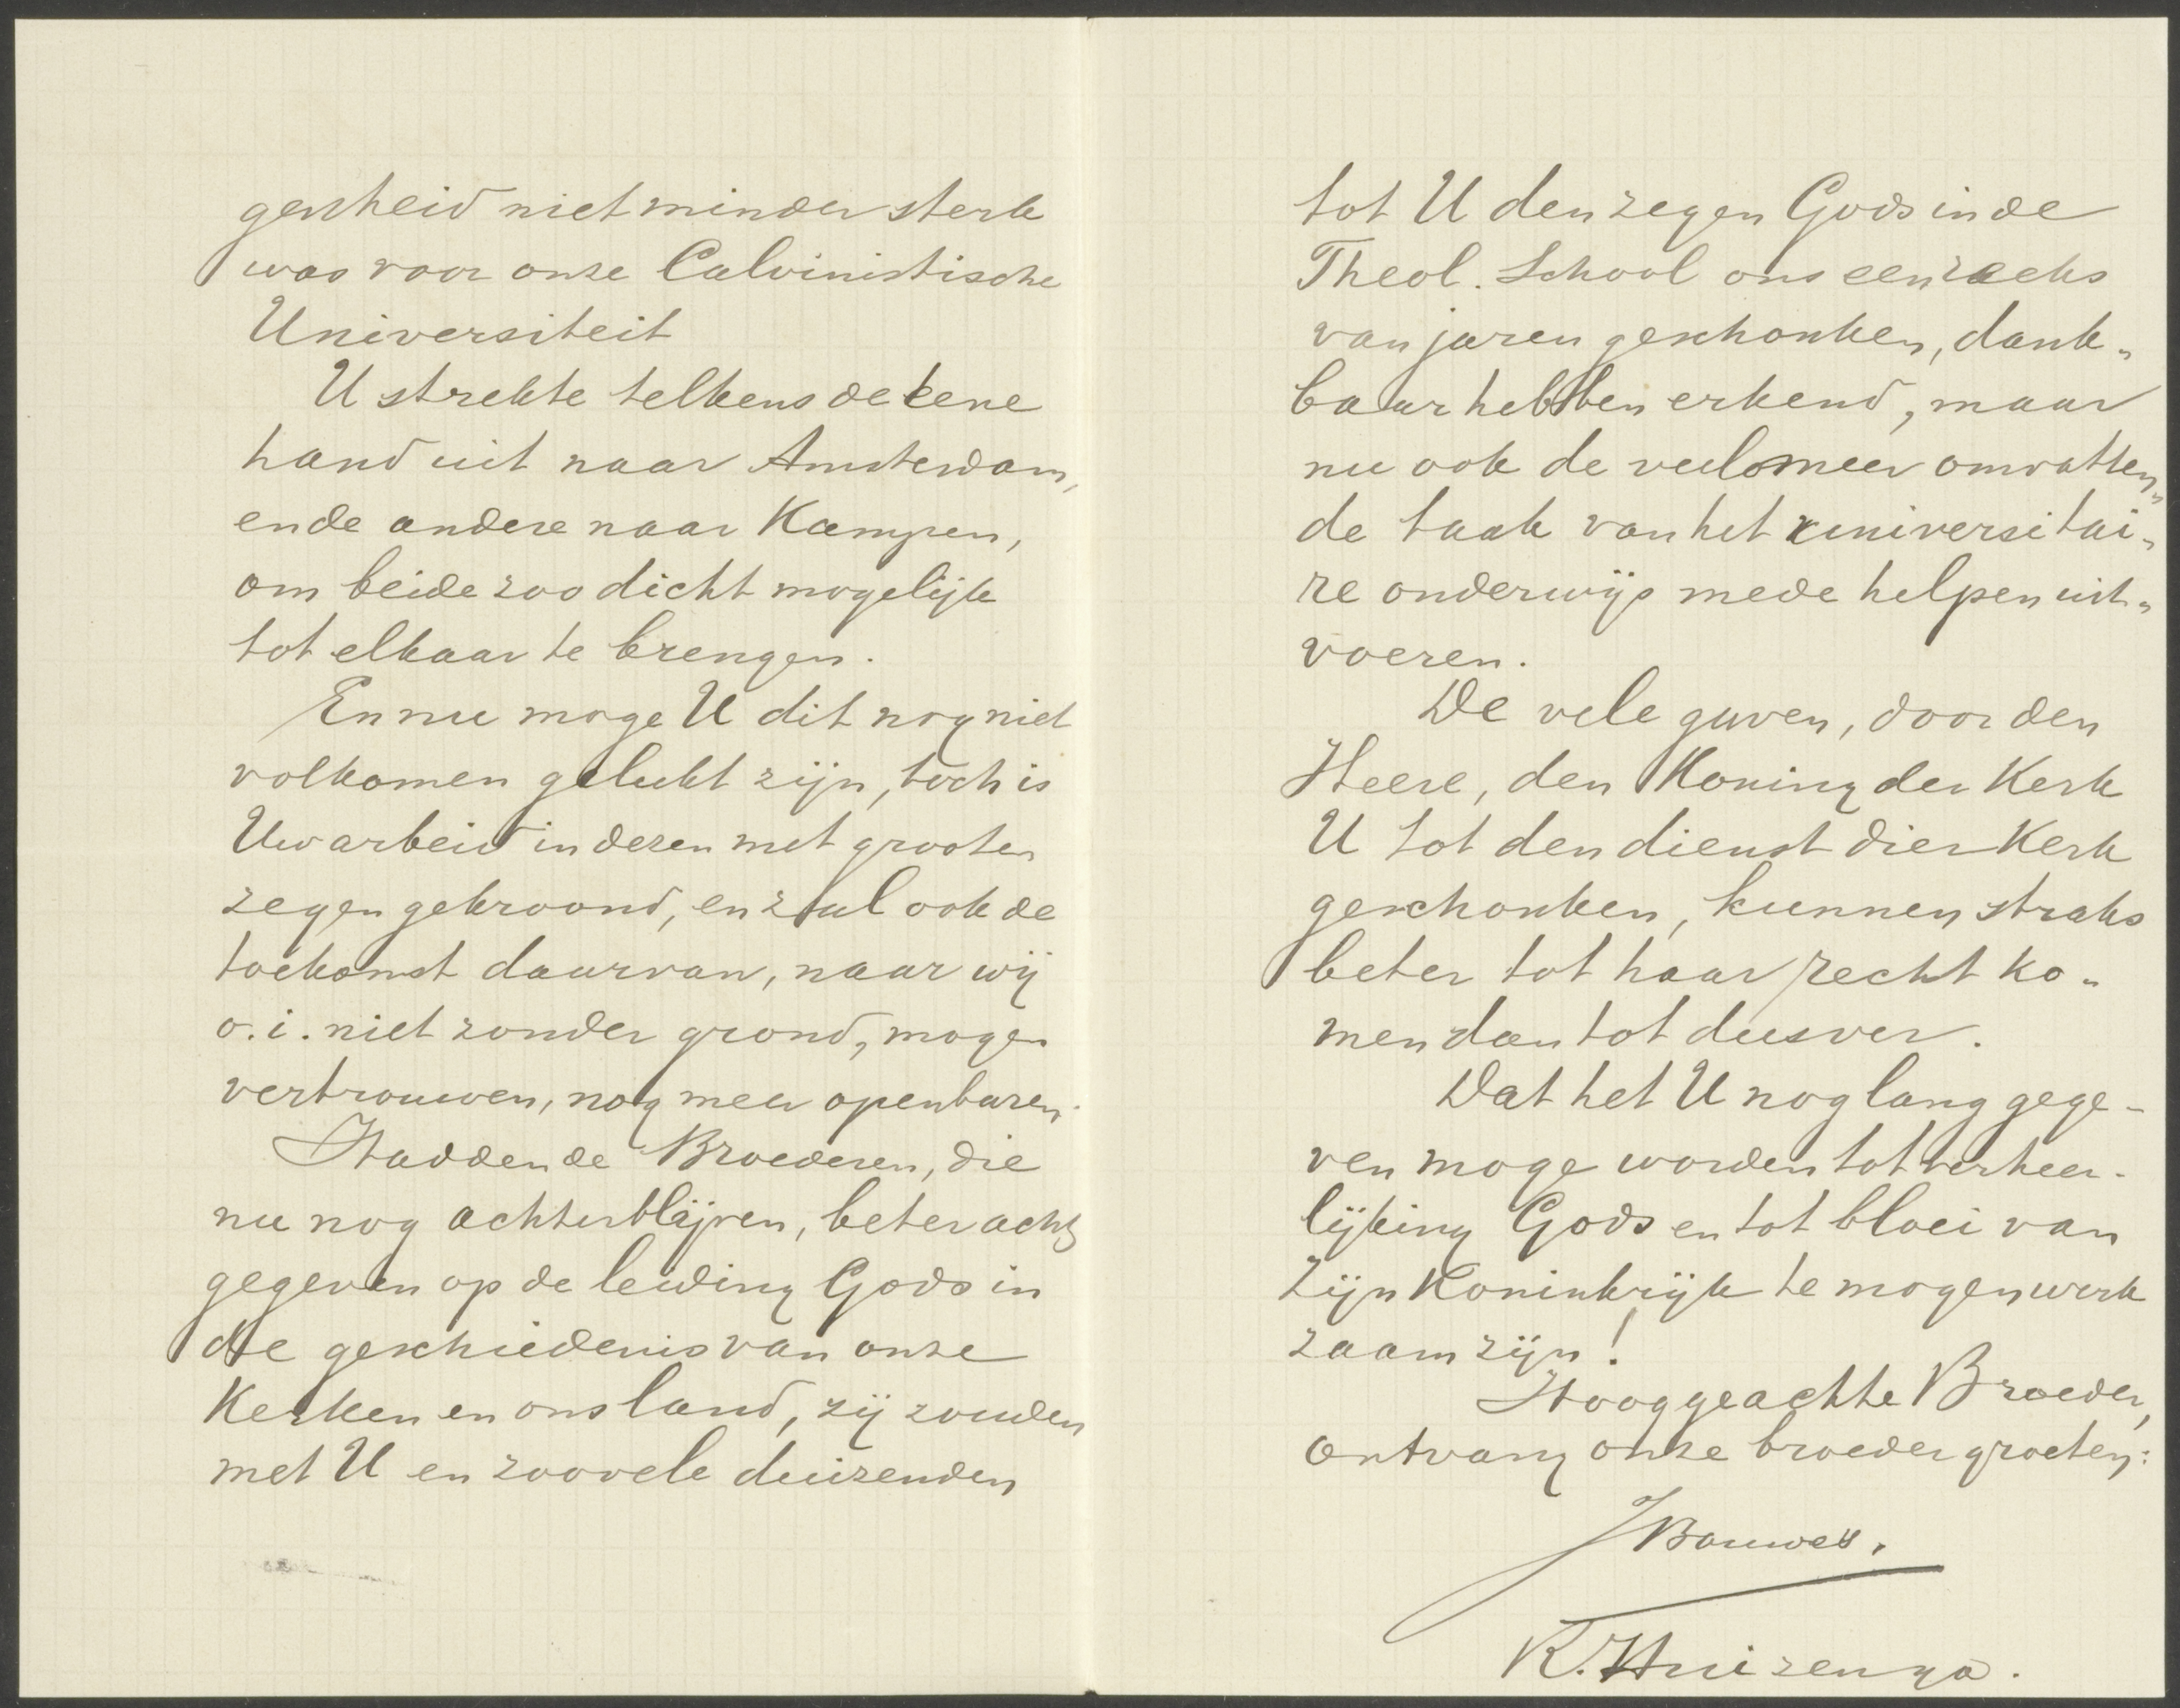 genheid niet minder sterk
was voor onze Calvinistische
Universiteit
U strekte telkens de eene
hand uit naar Amsterdam,
en de andere naar Kampen,
om beide zoo dicht mogelijk
tot elkaar te brengen.
En nu moge U dit nog niet
volkomen gelukt zijn, toch is
Uw arbeid in dezen met grooten
zegen gekroond, en zal ook de
toekomst daarvan, naar wij
o.i. niet zonder grond, mogen
vertrouwen, nog meer openbaren.
Hadden de Broederen, die
nu nog achterblijven, beter acht
gegeven op de leiding Gods in
de geschiedenis van onze
Kerken en ons land, zij zouden
met U en zoovele duizenden
tot U den zegen Gods in de
Theol. School ons een reeks
van jaren geschonken, dank-
baar hebben erkend, maar
nu ook de veelomeer omvatten-
de taak van het universitai-
re onderwijs mede helpen uit-
voeren.
De vele gaven, door den
Heere, den Koning der Kerk
U tot den dienst dier Kerk
geschonken, kunnen straks
beter tot haar recht ko-
men dan tot dusver.
Dat het U nog lang gege-
ven moge worden tot verheer-
lijking Gods en tot bloei van
Zijn Koninkrijk te mogen werk
zaam zijn!
Hooggeachte Broeder,
Ontvang onze broedergroeten:
J Bouwes.
K. Huizenga.